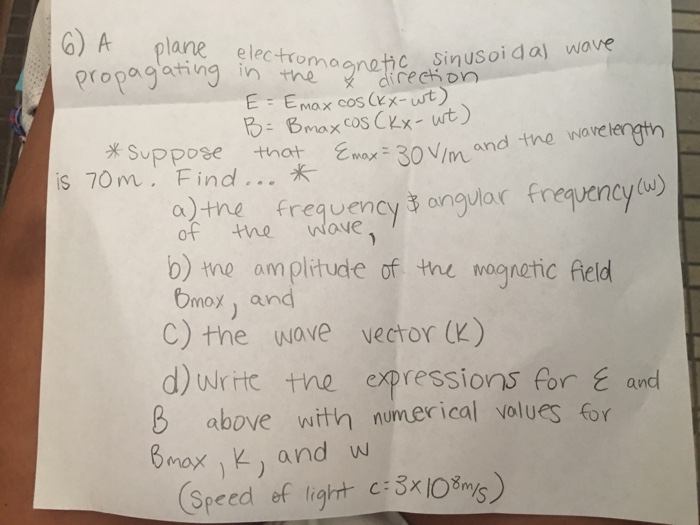 6) A plane electromagnetic sinusoidal wave
propagating in the x direction
E = Emax cos(kx-wt)
B = Bmax cos(kx-wt)
* Suppose that Emax = 30 V/m and the wavelength
is 70m. Find... *
a) the frequency & angular frequency (w)
of the wave,
b) the amplitude of the magnetic field
Bmax, and
c) the wave vector (K)
d) Write the expressions for E and
B above with numerical values for
Bmax, K, and w
(Speed of light c=3x10⁸m/s)